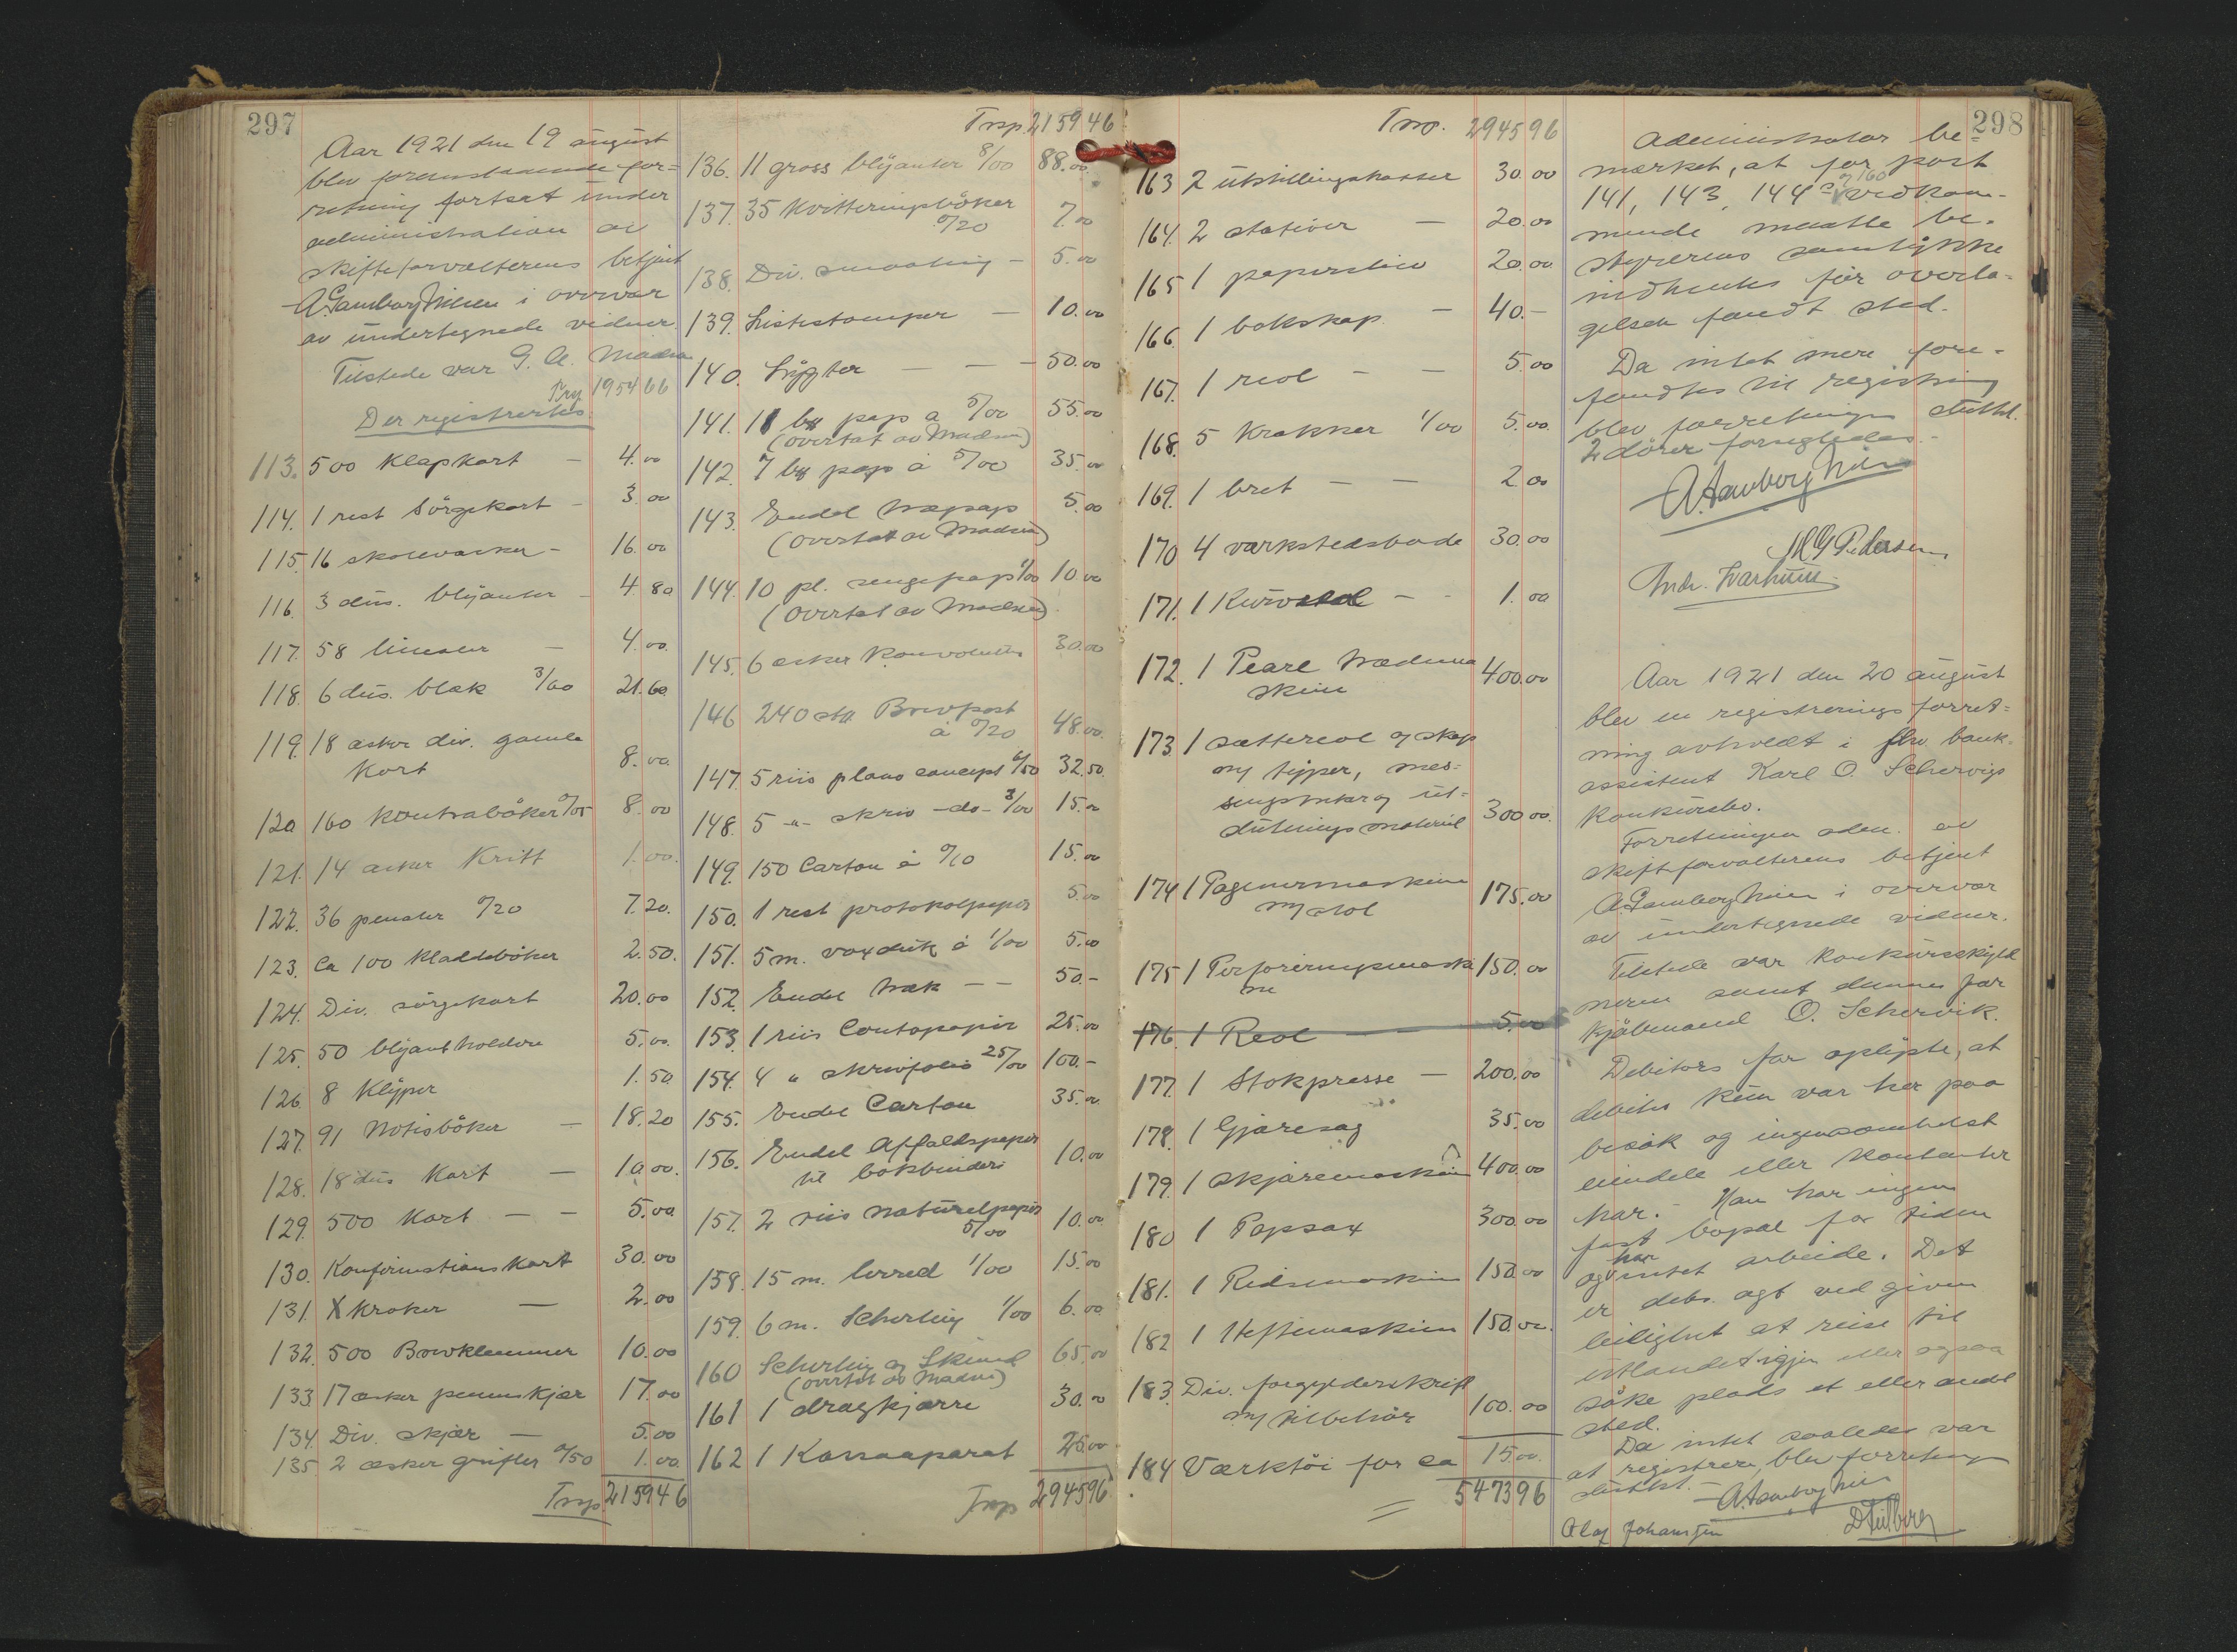 297
Aar 1921 den 19 august
blev foranstaaende for=
retning fortsat under
administration av
skifteforvalterens betjent
A. Samborg Nilsen i overvær
av undertegnede vidner.
Tilstede var G. A. Madsen
Trsp 195466
Der registrertes:
113. 500 Klapkort – 4.00
114. 1 rest Sörgekort – 3.00
115. 16 skolevasker – 16.00
116. 3 dus. blyanter – 4.80
117. 58 linealer – 4.00
118. 6 dus. blæk 3/60 21.60
119. 18 æsker div. gamle
Kort 8.00
120. 160 Kontrabøker 0/05 8.00
121. 14 æsker Kritt 1.00.
122. 36 penaler 0/20 7.20.
123. Ca 100 Kladdebøker 2.50.
124. Div. sørgekort 20.00
125. 50 blyantholdere 5.00.
126. 8 Klyper 1.50.
127. 91 Notisbøker – 18.20
128. 18 dus Kort – 10.00.
129. 500 Kort – – 5.00
130. Konfirmationskort 30.00
131. X Kroker – 2.00
132. 500 Brevklemmer 10.00
133. 17 æsker penneskjær 17.00
134. Div. skjær – 5.00
135. 2 æsker grifler 0/50 1.00.
Trsp 215946
Trsp. 215946
136. 11 gross blyanter 8/00 88.00.
137. 35 Kvitteringsbøker
0/20 7.00
138. Div. smaating – 5.00
139. Listestomper – 10.00
140. Lygter – – – 50.00
141. 11 bk pap a 5/00 55.00
(overtat av Madsen)
142. 7 bk pap à 5/00 35.00
143. Endel træpap 5.00
(Overtat av Madsen)
144. 10 pl. sengepap 1/00 10.00
(Overtat av Madsen).
145. 6 æsker Konvolutter 30.00
146 240 stk Brevpost
à 0/20 48.00.
147. 5 riis plano concept 6/50 32.50.
148. 5 -"- skriv -do- 3/00 15.00
149. 150 Carton à 0/10 15.00
150. 1 rest protokolpapir 5.00
151. 5 m. voxduk à 1/00 5.00
152. Endel træk – – 50.–
153. 1 riis Contopapir 25.00
154. 4 " skrivfolio 25/00 100.–
155. Endel Carton 35.00.
156. Endel Affaldspapir
til bokbinderi 10.00
157. 2 riis naturelpapir
5/00 10.00
158. 15 m. lerred 1/00 15.00
159. 6 m. Schirting 1/00 6.00.
160 Schirting og Skind 65.00
(overtat av Madsen)
161 1 dragkjærre 30.00
162 1 Kassaaparat 25.00
Trsp 294596
298
Trsp. 294596
163 2 utstillingskasser 30.00
164. 2 stativer – 20.00
165 1 papirstativ 20.00.
166. 1 bokskap. – 40.–
167. 1 reol – – 5.00
168. 5 Krakker 1/00 5.00.
169. 1 bret – – 2.00
170 4 værkstedsborde 30.00
171. 1 Kurvstol – – 1.00
172. 1 Pearl trædema
skin 400.00
173. 1 sættereol og skap
m/ typer, mes=
singstreker og ut=
slutnings material 300.00.
174 1 Pagineermaskin
m/ stol 175.00
175 1 Perforeringsmaski
ne 150.00
176. 1 Reol – – 5.00
177. 1 Stokpresse – 200.00
178. 1 Gjæresag 35.00
179. 1 skjæremaskin 400.00
180 1 Papsax 300.00
181. 1 Ridsemaskin 150.00
182 1 Heftemaskin 150.00.
183. Div. forgylderskrift
m/ tilbehör 100.00
184 Værktöi for ca 15.00.
547396
Administrator be=
merket, at for post
141, 143, 144 og 160 vedkom-
mende maatte be-
styrerens samtykke
indhentes før overta=
gelsen fandt sted.
Da intet mere fore-
fandtes til registrering
blev forretningen sluttet.
2 dører forsegledes.
A. Samborg Nilsen
M G Pedersen
Aar 1921 den 20 august
blev en registrerings forret=
ning avholdt i fhv. bank=
assistent Karl O. Schervigs
Konkursbo.
Forretningen adm. av
skifteforvalterens betjent
A. Samborg Nilsen i overvær
av undertegnede vidner.
Tilstede var Konkursskyld
neren samt dennes far
Kjøbmand O. Schervik.
Debitors far oplyste, at
debitor kun var her paa
besøk og ingensomhelst
eiendele eller Kontanter
har. – Han har ingen
fast bopæl for tiden
og har intet arbeide. Det
er debs. agt ved given
leilighet at reise til
utlandet igjen eller ogsaa
søke plads et eller andet
sted.
Da intet saaledes var
at registrere, blev forretningen
sluttet. –
A. Samborg Nilsen
Olaf Johansen